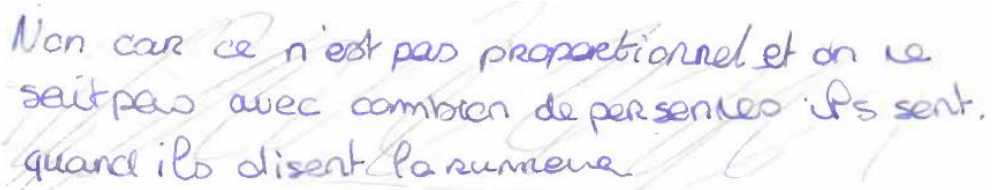 Non car ce n'est pas proportionnel et on ne
sait pas avec combien de personnes ils sont.
quand ils disent la rumeur